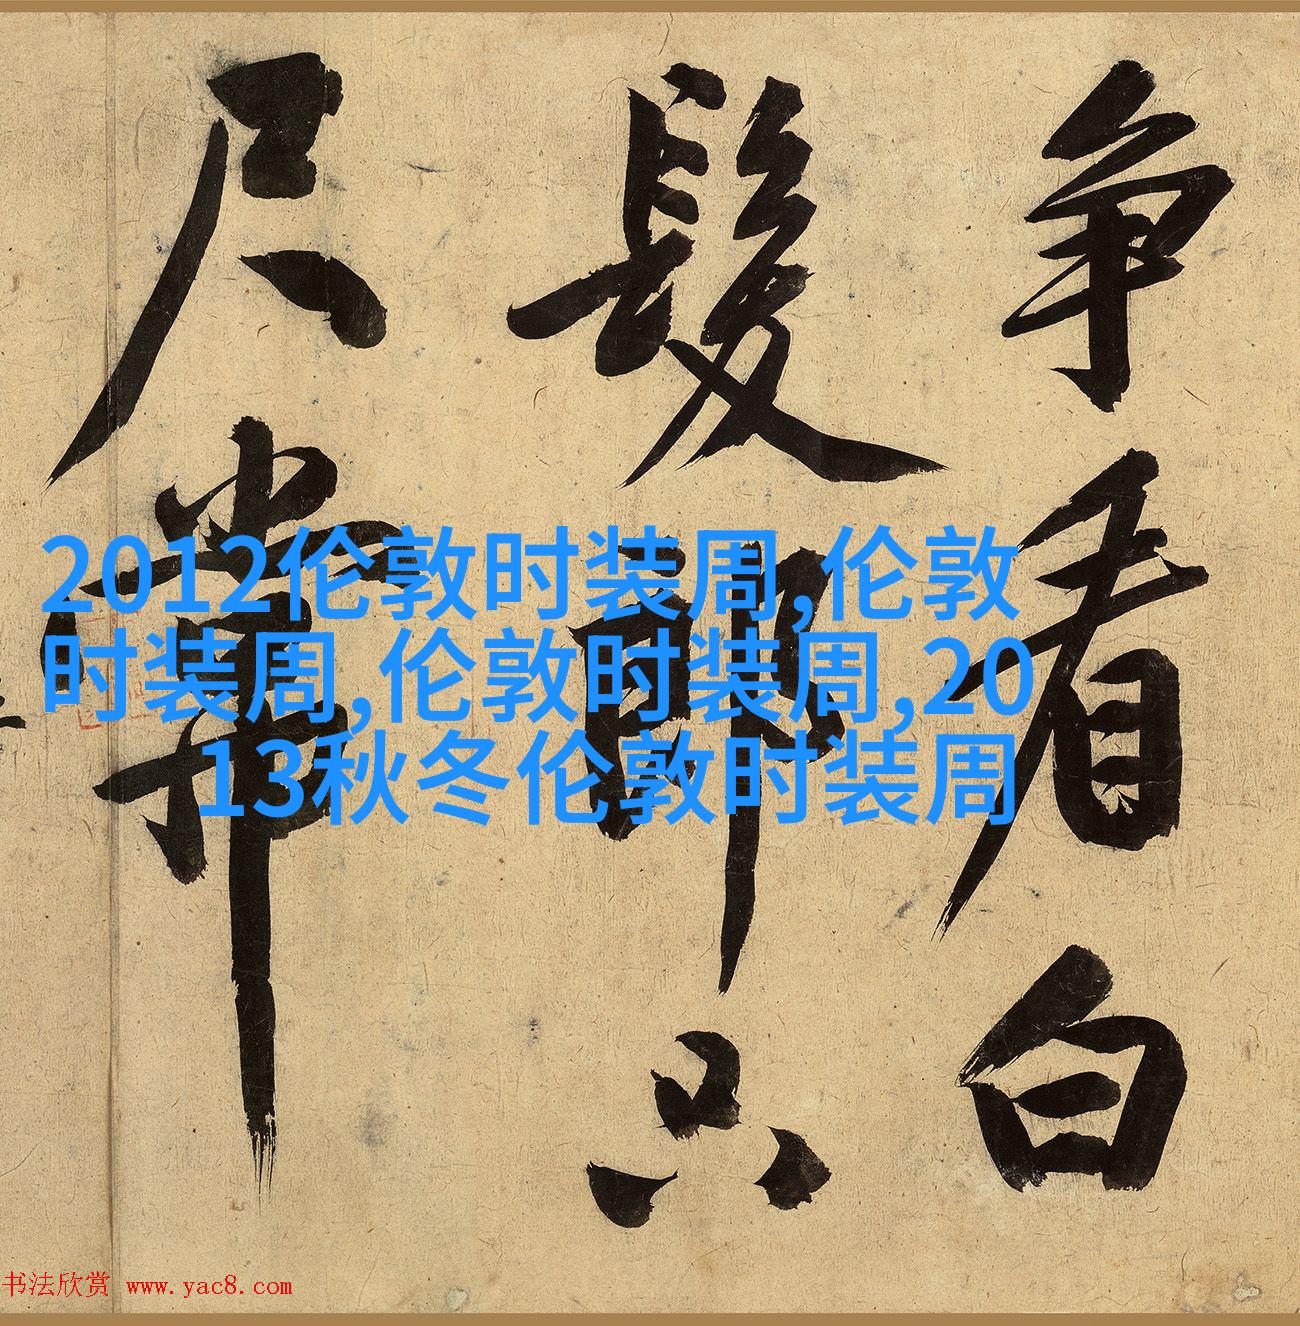 争看白
髮郎只
尺常
2012伦敦时装周,伦敦
时装周,伦敦时装周,20
13秋冬伦敦时装周
书法欣赏 www.yac8.com